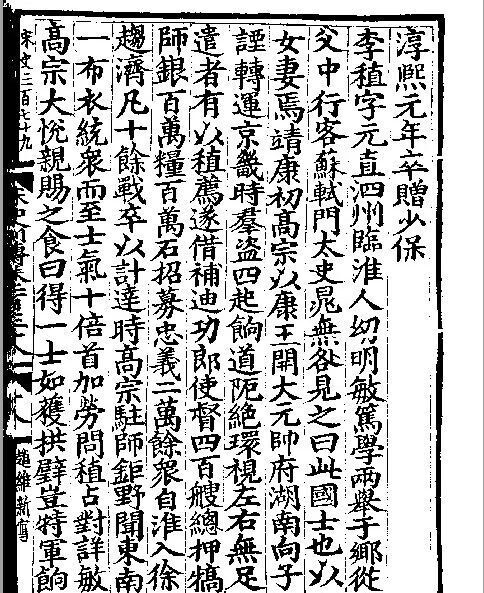 淳熙元年卒贈少保
李稙字元直泗州臨淮人幼明敏篤學兩舉于鄉從
父中行客蘇軾門太史晁無咎見之曰此國士也以
女妻焉靖康初高宗以康王開大元帥府湖南向子
諲轉運京畿時羣盜四起餉道阨絕環視左右無足
遣者有以稙薦遂借補迪功郎使督四百艘總押犒
師銀百萬糧百萬石招募忠義二萬餘衆自淮入徐
趨濟凡十餘戰卒以計達時高宗駐師鉅野聞東南
一布衣統衆而至士氣十倍首加勞問稙占對詳敏
高宗大悅親賜之食曰得一士如獲拱璧豈特軍餉
三百七十九
趙維新